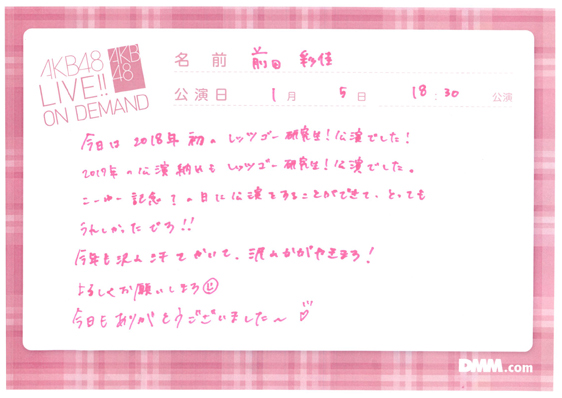 AKB48
LIVE!!
ON DEMAND
AKB
48
名前 前田 彩佳
公演日 1月 5日 18:30 公演
今日は2018年初のレッツゴー研究生!公演でした!
2017年の公演納めもレッツゴー研究生!公演でした。
こーゆー記念?の日に公演をすることができて、とっても
うれしかったです!!
今年も沢山汗をかいて、沢山かがやきます!
よろしくお願いします
今日もありがとうございました〜♡
DMM.com